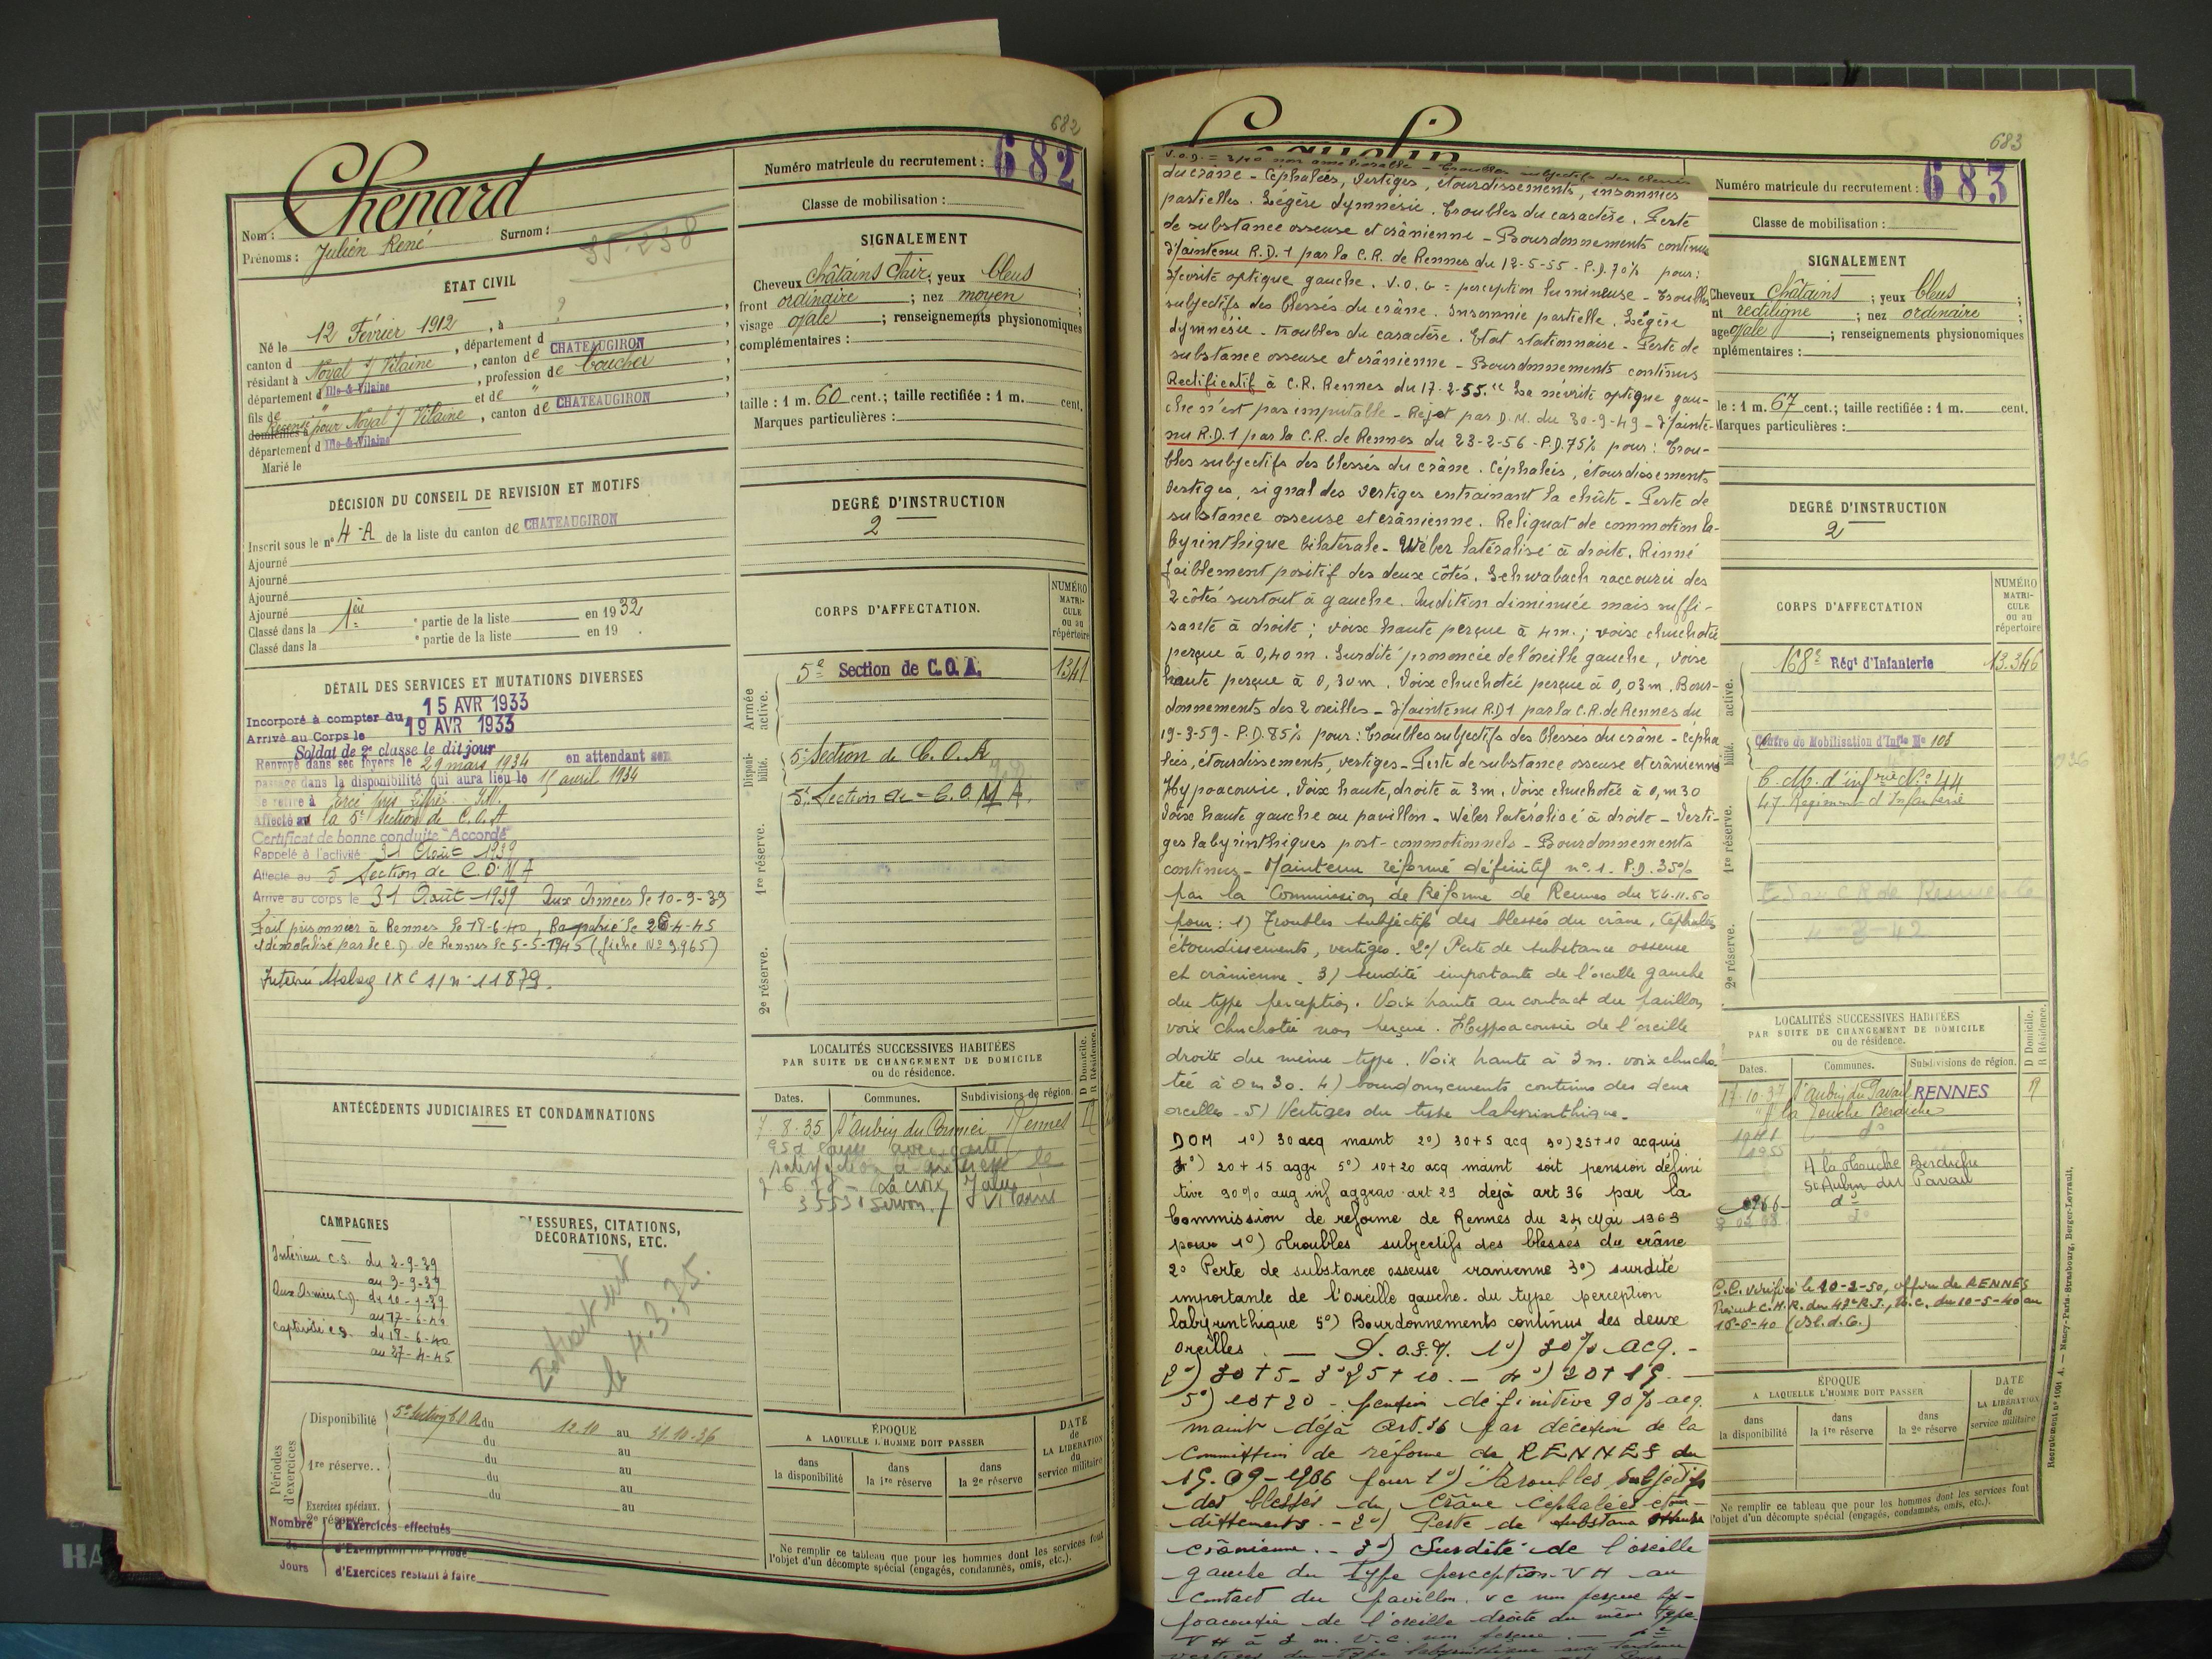 682
Numéro matricule du recrutement : 682
Nom : Chenard
Prénoms : Julien René Surnom :
35-238
Classe de mobilisation :
ÉTAT CIVIL
Né le 12 Février 1912, à ?,
canton d , département d ,
résidant à Noyal s/ Vilaine, canton de CHATEAUGIRON
département d Ille-&-Vilaine, profession de boucher
fils de " et de "
domiciliés à Recensé pour Noyal s/ Vilaine, canton de CHATEAUGIRON
département d Ille-&-Vilaine
Marié le
DÉCISION DU CONSEIL DE REVISION ET MOTIFS
Inscrit sous le n° 4-A de la liste du canton de CHATEAUGIRON
Ajourné
Ajourné
Ajourné
Ajourné
Classé dans la 1ère partie de la liste en 1932
Classé dans la partie de la liste en 19 .
DÉTAIL DES SERVICES ET MUTATIONS DIVERSES
Incorporé à compter du 15 AVR 1933
Arrivé au Corps le 19 AVR 1933
Soldat de 2e classe le dit jour
Renvoyé dans ses foyers le 29 mars 1934 en attendant son
passage dans la disponibilité qui aura lieu le 15 avril 1934
Se retire à
Affecté à la 5e Section de C.O.A
Certificat de bonne conduite "Accordé"
Rappelé à l'activité 31 Août 1939
Affecté au 5 Section de C.O.M.A
Arrivé au corps le 31 Août 1939 Aux Armées le 10-9-39
Fait prisonnier à Rennes le 18-6-40, Rapatrié le 26-4-45
et démobilisé par le C.D. de Rennes le 5-5-1945 (fiche N° 3965)
Interné Stalag IX C s/ n° 11879.
ANTÉCÉDENTS JUDICIAIRES ET CONDAMNATIONS
CAMPAGNES
Intérieur C.S. du 2-9-39
au 9-9-39
Aux Armées C.D. du 10-9-39
au 17-6-40
Captivité C.S. du 18-6-40
au 27-4-45
BLESSURES, CITATIONS,
DÉCORATIONS, ETC.
Extrait
le 4.3.75.
Périodes d'exercices
Disponibilité 5e Section C.O.A. du 12.10 au 31.10.36
du au
1re réserve.. du au
du au
du au
Exercices spéciaux.
2e réserve.
Nombre d'Exercices effectués
de d'Exemption de période
Jours d'Exercices restant à faire
SIGNALEMENT
Cheveux châtains clair; yeux bleus ;
front ordinaire ; nez moyen ;
visage ovale ; renseignements physionomiques
complémentaires :
taille : 1 m. 60 cent.; taille rectifiée : 1 m. cent.
Marques particulières :
DEGRÉ D'INSTRUCTION
2
CORPS D'AFFECTATION.
NUMÉRO MATRICULE ou au répertoire
Armée active.
5e Section de C.O.A. 1341
Disponibilité.
5e Section de C.O.A
1re réserve.
5e Section de C.O.M.A.
2e réserve.
LOCALITÉS SUCCESSIVES HABITÉES
PAR SUITE DE CHANGEMENT DE DOMICILE
ou de résidence.
D Domicile. R Résidence.
Dates. Communes. Subdivisions de région.
7.8.35 St Aubin du Cormier Rennes R
La croix
Servon.
ÉPOQUE
A LAQUELLE L'HOMME DOIT PASSER
DATE de LA LIBÉRATION du service militaire
dans la disponibilité
dans la 1re réserve
dans la 2e réserve
Ne remplir ce tableau que pour les hommes dont les services font
l'objet d'un décompte spécial (engagés, condamnés, omis, etc.).
683
V.O.D. = 3/10 non améliorable - Troubles subjectifs des blessés
du crâne - Céphalées, vertiges, étourdissements, insomnies
partielles. Légère dymnésie. Troubles du caractère. Perte
de substance osseuse et crânienne - Bourdonnements continus
Maintenu R.D.1 par la C.R. de Rennes du 12-5-55 - P.D. 70% pour :
Névrite optique gauche. V.O.G = perception lumineuse - Troubles
subjectifs des blessés du crâne. Insomnie partielle. Légère
dymnésie - troubles du caractère. Etat stationnaire - Perte de
substance osseuse et crânienne - Bourdonnements continus
Rectificatif à C.R. Rennes du 17-2-55. "La névrite optique gau-
che n'est pas imputable - Rejet par D.M. du 30-9-49 - Mainte-
nu R.D.1 par la C.R. de Rennes du 23-2-56 - P.D. 75% pour : Trou-
bles subjectifs des blessés du crâne. Céphalées, étourdissements
vertiges, signal des vertiges entrainant la chûte - Perte de
substance osseuse et crânienne. Reliquat de commotion la-
byrinthique bilatérale - Wéber latéralisé à droite. Rinné
faiblement positif des deux côtés. Schwabach raccourci des
2 côtés surtout à gauche. Audition diminuée mais suffi-
sante à droite ; voix haute perçue à 4m. ; voix chuchotée
perçue à 0,40m. Surdité prononcée de l'oreille gauche, voix
haute perçue à 0,30m. Voix chuchotée perçue à 0,03m. Bour-
donnements des 2 oreilles - Maintenu R.D1 par la C.R. de Rennes du
19-3-59 - P.D. 85% pour : Troubles subjectifs des blessés du crâne - Cépha
lées, étourdissements, vertiges - Perte de substance osseuse et crânienne
Hypoacousie. Voix haute, droite à 3m. Voix chuchotée à 0,m30
Voix haute gauche au pavillon - Wéber latéralisé à droite - Verti-
ges labyrinthiques post-commotionnels - Bourdonnements
continus - Maintenu réformé définitif n° 1. P.D. 35%
par la Commission de Réforme de Rennes du 24.11.50
pour : 1) Troubles subjectifs des blessés du crâne, Céphalées
étourdissements, vertiges. 2°/ Perte de substance osseuse
et crânienne. 3) surdité importante de l'oreille gauche
du type perception. Voix haute au contact du pavillon
voix chuchotée non perçue. Hypoacousie de l'oreille
droite du même type. Voix haute à 3m. voix chucho
tée à 0m30. 4) bourdonnements continus des deux
oreilles - 5) Vertiges du type labyrinthique.
DOM 1°) 30 acq maint 2°) 30+5 acq 3°) 25+10 acquis
4°) 20+15 aggr 5°) 10+20 acq maint soit pension défini
tive 90% aug inf aggrav art 29 déjà art 36 par la
Commission de réforme de Rennes du 24 Mai 1963
pour 1°) troubles subjectifs des blessés du crâne
2° Perte de substance osseuse cranienne 3°) surdité
importante de l'oreille gauche. du type perception
labyrinthique 5°) Bourdonnements continus des deux
oreilles. 1°) 30% acq. -
2°) 30+5 - 3°) 25+10. - 4°) 20+15. -
5°) 10+20 - pension définitive 90% acq.
maint déjà Art. 36 par décision de la
Commission de réforme de RENNES du
15-09-1966 pour 1°) Troubles subjectifs
des blessés du crâne céphalées étour-
dissements. - 2°) Perte de substance osseuse
crânienne. - 3°) Surdité de l'oreille
gauche du type perception - V H au
contact du pavillon. V C non perçue hy-
poacousie de l'oreille droite du même type
V H à 3 m. V.C. non perçue.
vertiges du type labyrinthique avec tendance
Numéro matricule du recrutement : 683
Classe de mobilisation :
SIGNALEMENT
Cheveux châtains ; yeux bleus ;
nt rectiligne ; nez ordinaire ;
age ovale ; renseignements physionomiques
mplémentaires :
le : 1 m. 67 cent.; taille rectifiée : 1 m. cent.
Marques particulières :
DEGRÉ D'INSTRUCTION
2
CORPS D'AFFECTATION
NUMÉRO MATRICULE ou au répertoire
active.
168e Régt d'Infanterie 13.346
bilité.
Centre de Mobilisation d'Infie N° 103
1re réserve.
C.M. d'infrie N° 44
47 Régiment d'Infanterie
2e réserve.
LOCALITÉS SUCCESSIVES HABITÉES
PAR SUITE DE CHANGEMENT DE DOMICILE
ou de résidence.
D Domicile. R Résidence.
Dates. Communes. Subdivisions de région.
17.10.37 St Aubin du Pavail RENNES R
" la Touche Berdiche
1941 d°
1955 A la Touche Berdiche
St Aubin du Pavail
d°
C.C. vérifié le 20-2-50, offrin de RENNES
16-6-40 (Bl. d. G.)
ÉPOQUE
A LAQUELLE L'HOMME DOIT PASSER
DATE de LA LIBÉRATION du service militaire
dans la disponibilité
dans la 1re réserve
dans la 2e réserve
Ne remplir ce tableau que pour les hommes dont les services font
l'objet d'un décompte spécial (engagés, condamnés, omis, etc.).
Recrutement n° 1001 A. — Nancy-Paris-Strasbourg, Berger-Levrault.